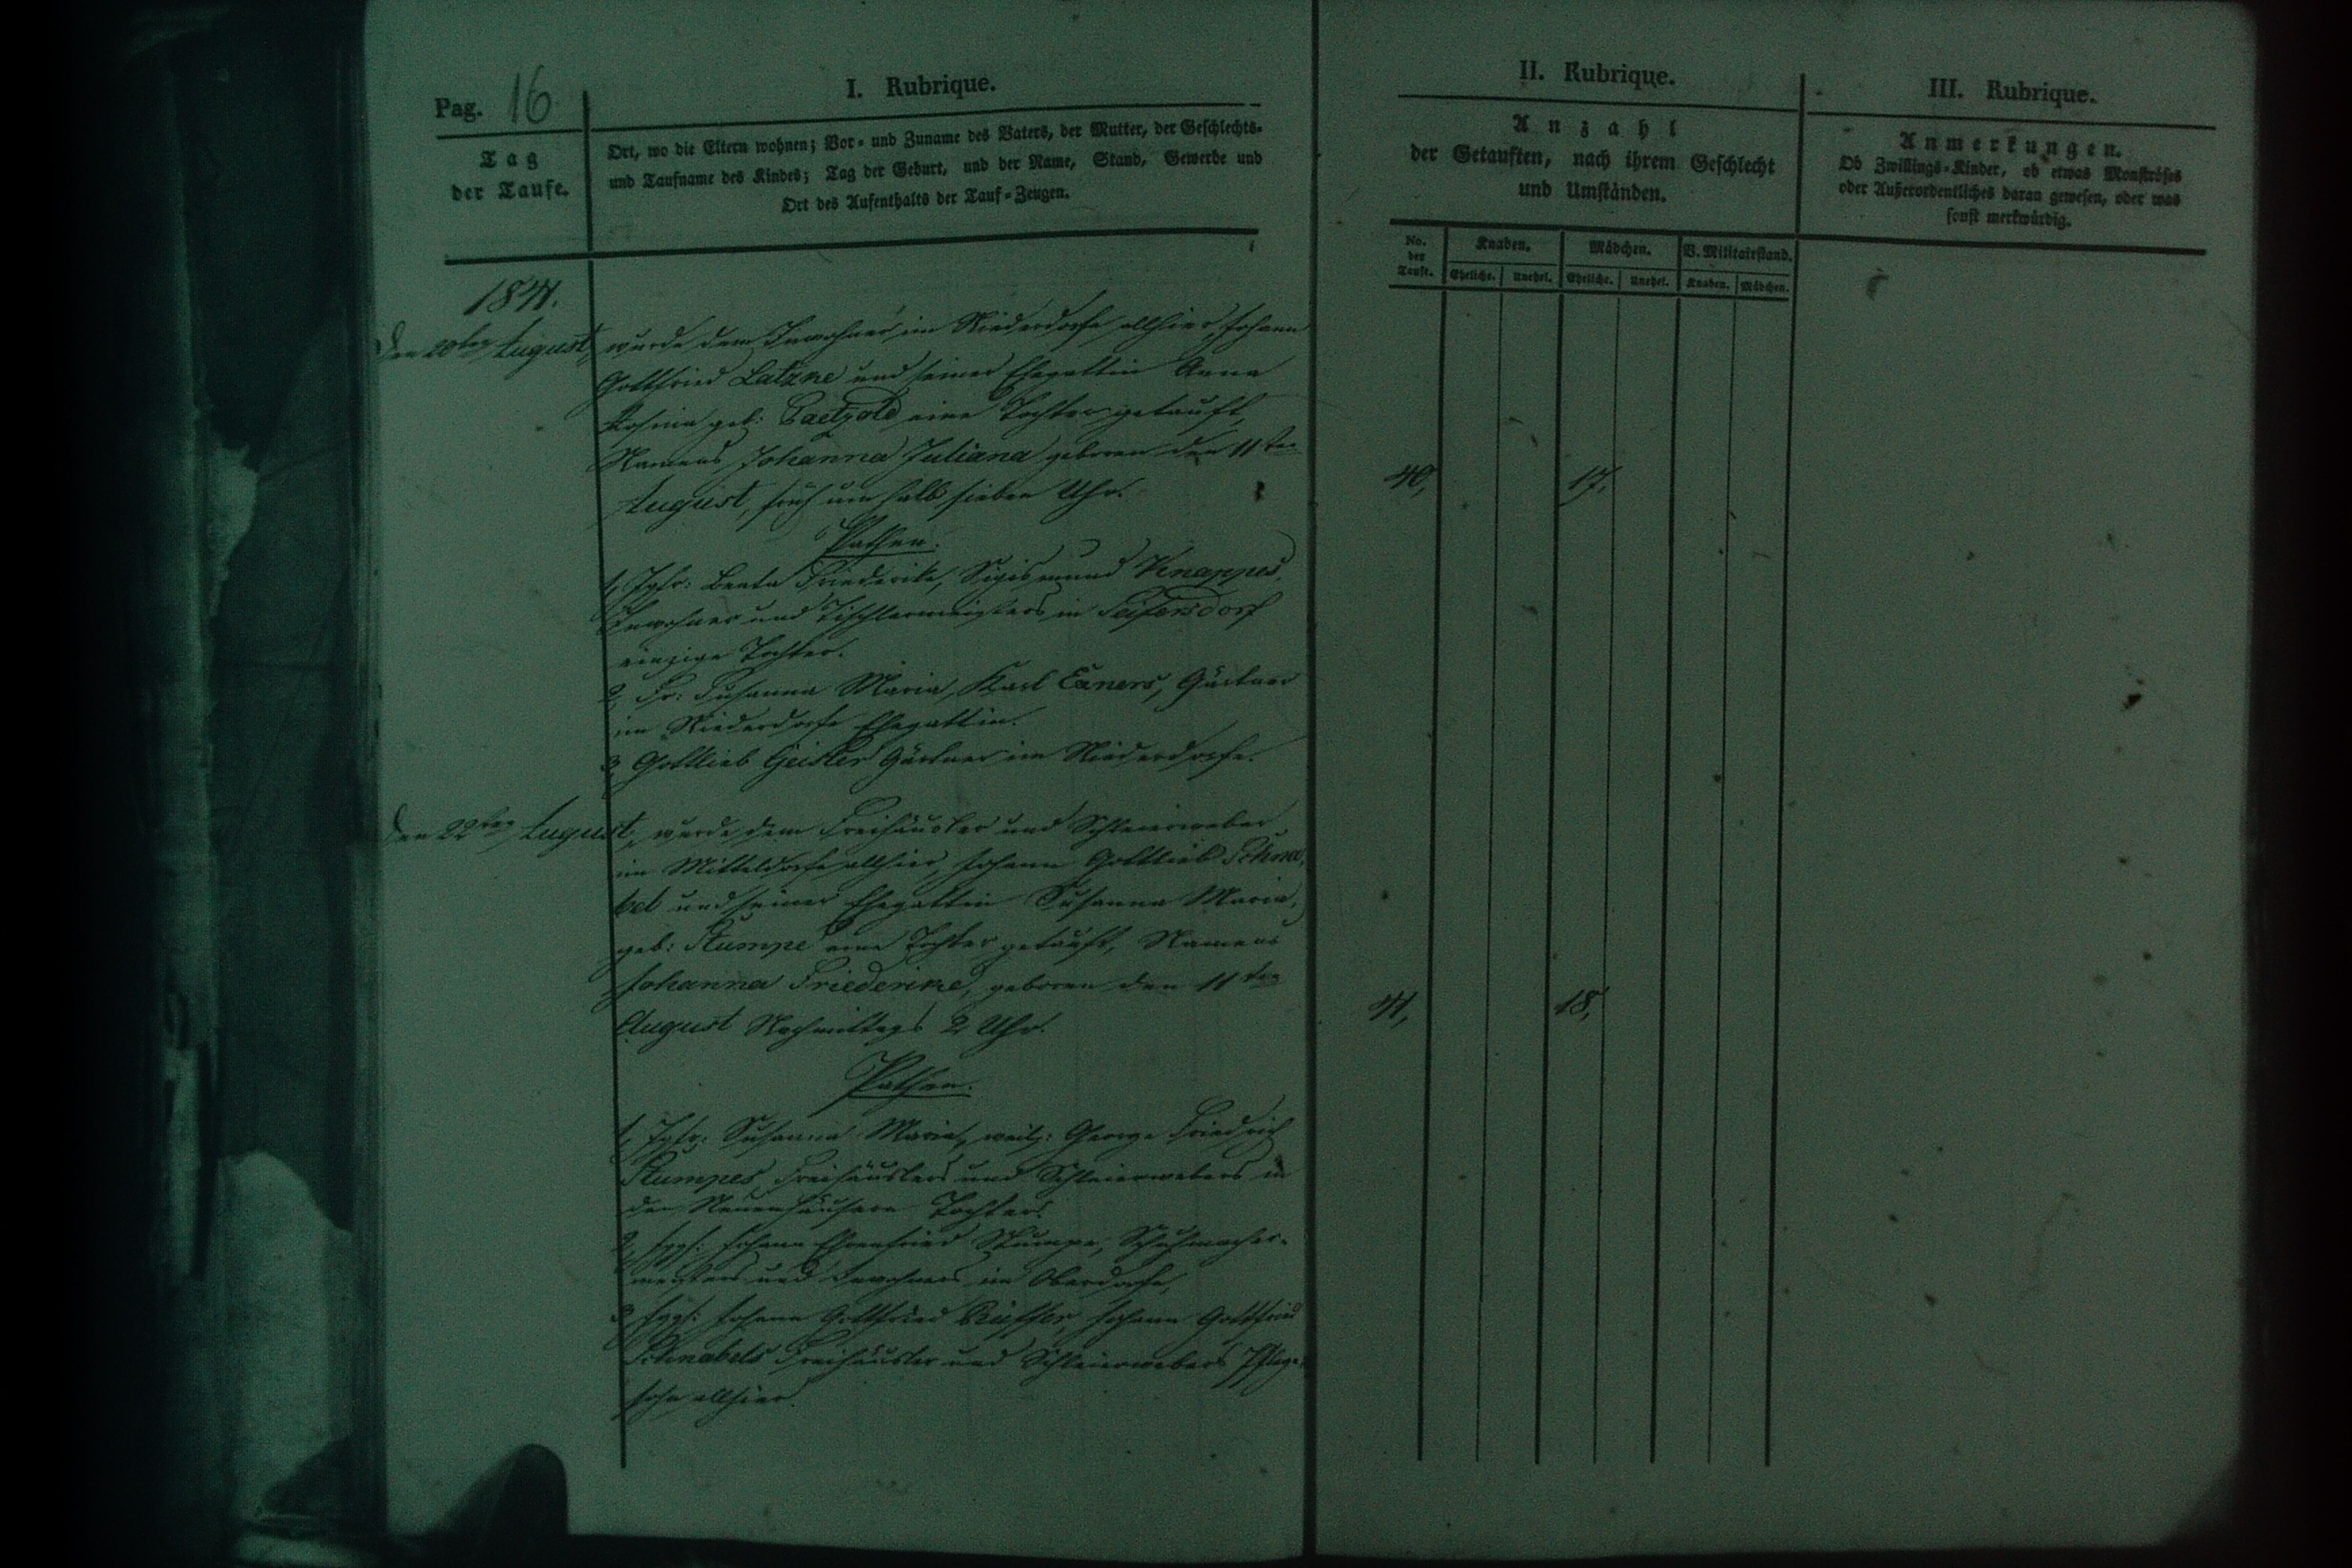 Pag. 16
I. Rubrique.
Tag
der Taufe.
Ort, wo die Eltern wohnen; Vor- und Zuname des Vaters, der Mutter, der Geschlechts-
und Taufname des Kindes; Tag der Geburt, und der Name, Stand, Gewerbe und
Ort des Aufenthalts der Tauf-Zeugen.
1841.
den 20ten August, wurde dem Inwohner im Niederdorfe allhier, Johann
Gottfried Latzke und seiner Ehegattin Anna
Rosina geb: Paetzold eine Tochter getauft,
Namens Johanna Juliana geboren den 11ten
August, früh um halb sieben Uhr.
Pathen.
1, Jgfr: Beate Friederike, Sigismund Knappes,
Inwohner und Tischlermeisters in Seifersdorf
einzige Tochter.
2, Fr: Susanna Maria, Karl Exners, Gärtner
im Niederdorfe Ehegattin.
3, Gottlieb Geisler Gärtner im Niederdorfe.
den 22ten August, wurde dem Freihäusler und Schleierweber
im Mitteldorfe allhier, Johann Gottlieb Schna-
bel und seiner Ehegattin Susanna Maria,
geb: Stumpe eine Tochter getauft, Namens
Johanna Friederike, geboren den 11ten
August Nachmittags 2 Uhr.
Pathen.
1, Jgfr: Susanna Maria, weil: George Friedrich
Stumpes, Freihäuslers und Schleierwebers in
den Neuenhäusern Tochter.
2, Johann Ehrenfried Stumpe, Schuhmacher-
meisters und Inwohners im Oberdorfe,
3, Johann Gottfried Rüffer, Johann Gottfried
Schnabels Freihäusler und Schleierwebers Pflege-
sohn allhier.
II. Rubrique.
Anzahl
der Getauften, nach ihrem Geschlecht
und Umständen.
No. der Taufe.
Knaben. Mädchen. V. Militairstand.
Eheliche. Unehel. Eheliche. Unehel. Knaben. Mädchen.
40, 17,
41, 18,
III. Rubrique.
Anmerkungen.
Ob Zwillings-Kinder, ob etwas Monströses
oder Außerordentliches daran gewesen, oder was
sonst merkwürdig.